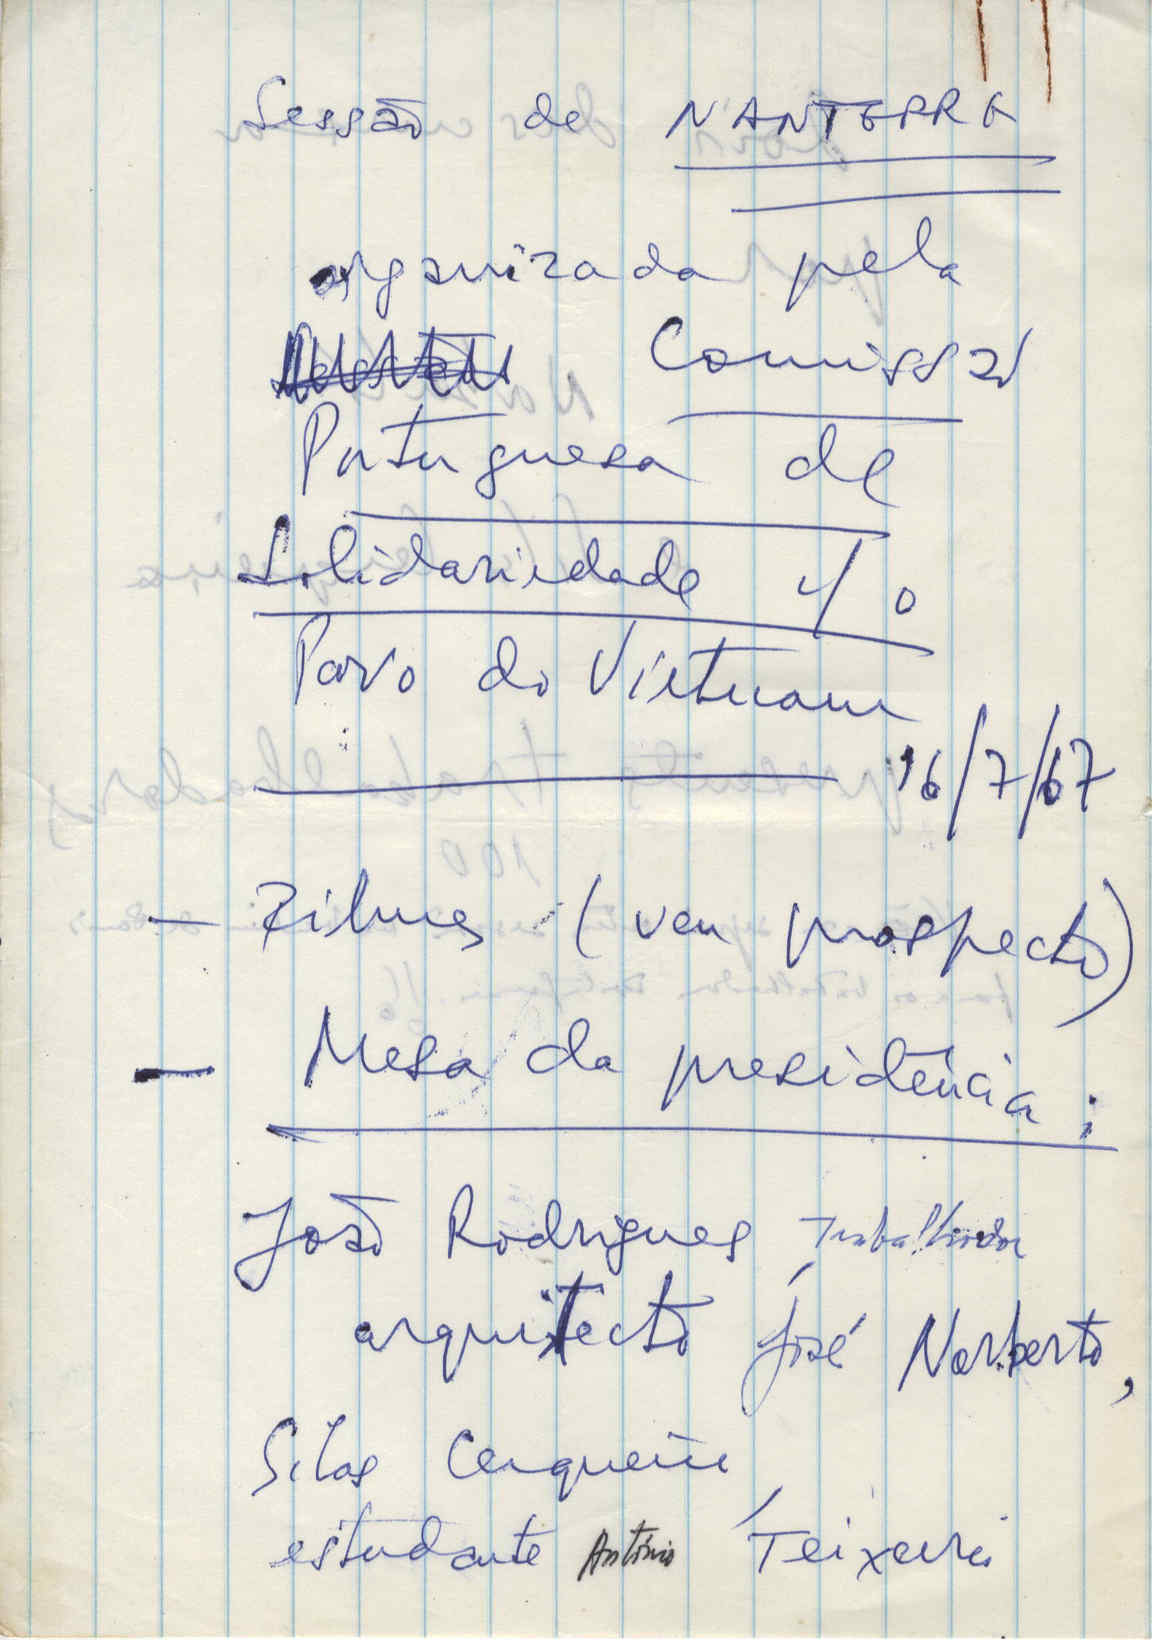 Sessão de NANTERRE
organizada pela
Comissão
Portuguesa de
Solidariedade c/ o
Povo do Vietnam
16/7/67
— Filmes (ver prospecto)
— Mesa da presidência:
João Rodrigues, Trabalhador
arquitecto José Norberto,
Silas Cerqueira,
estudante António Teixeira